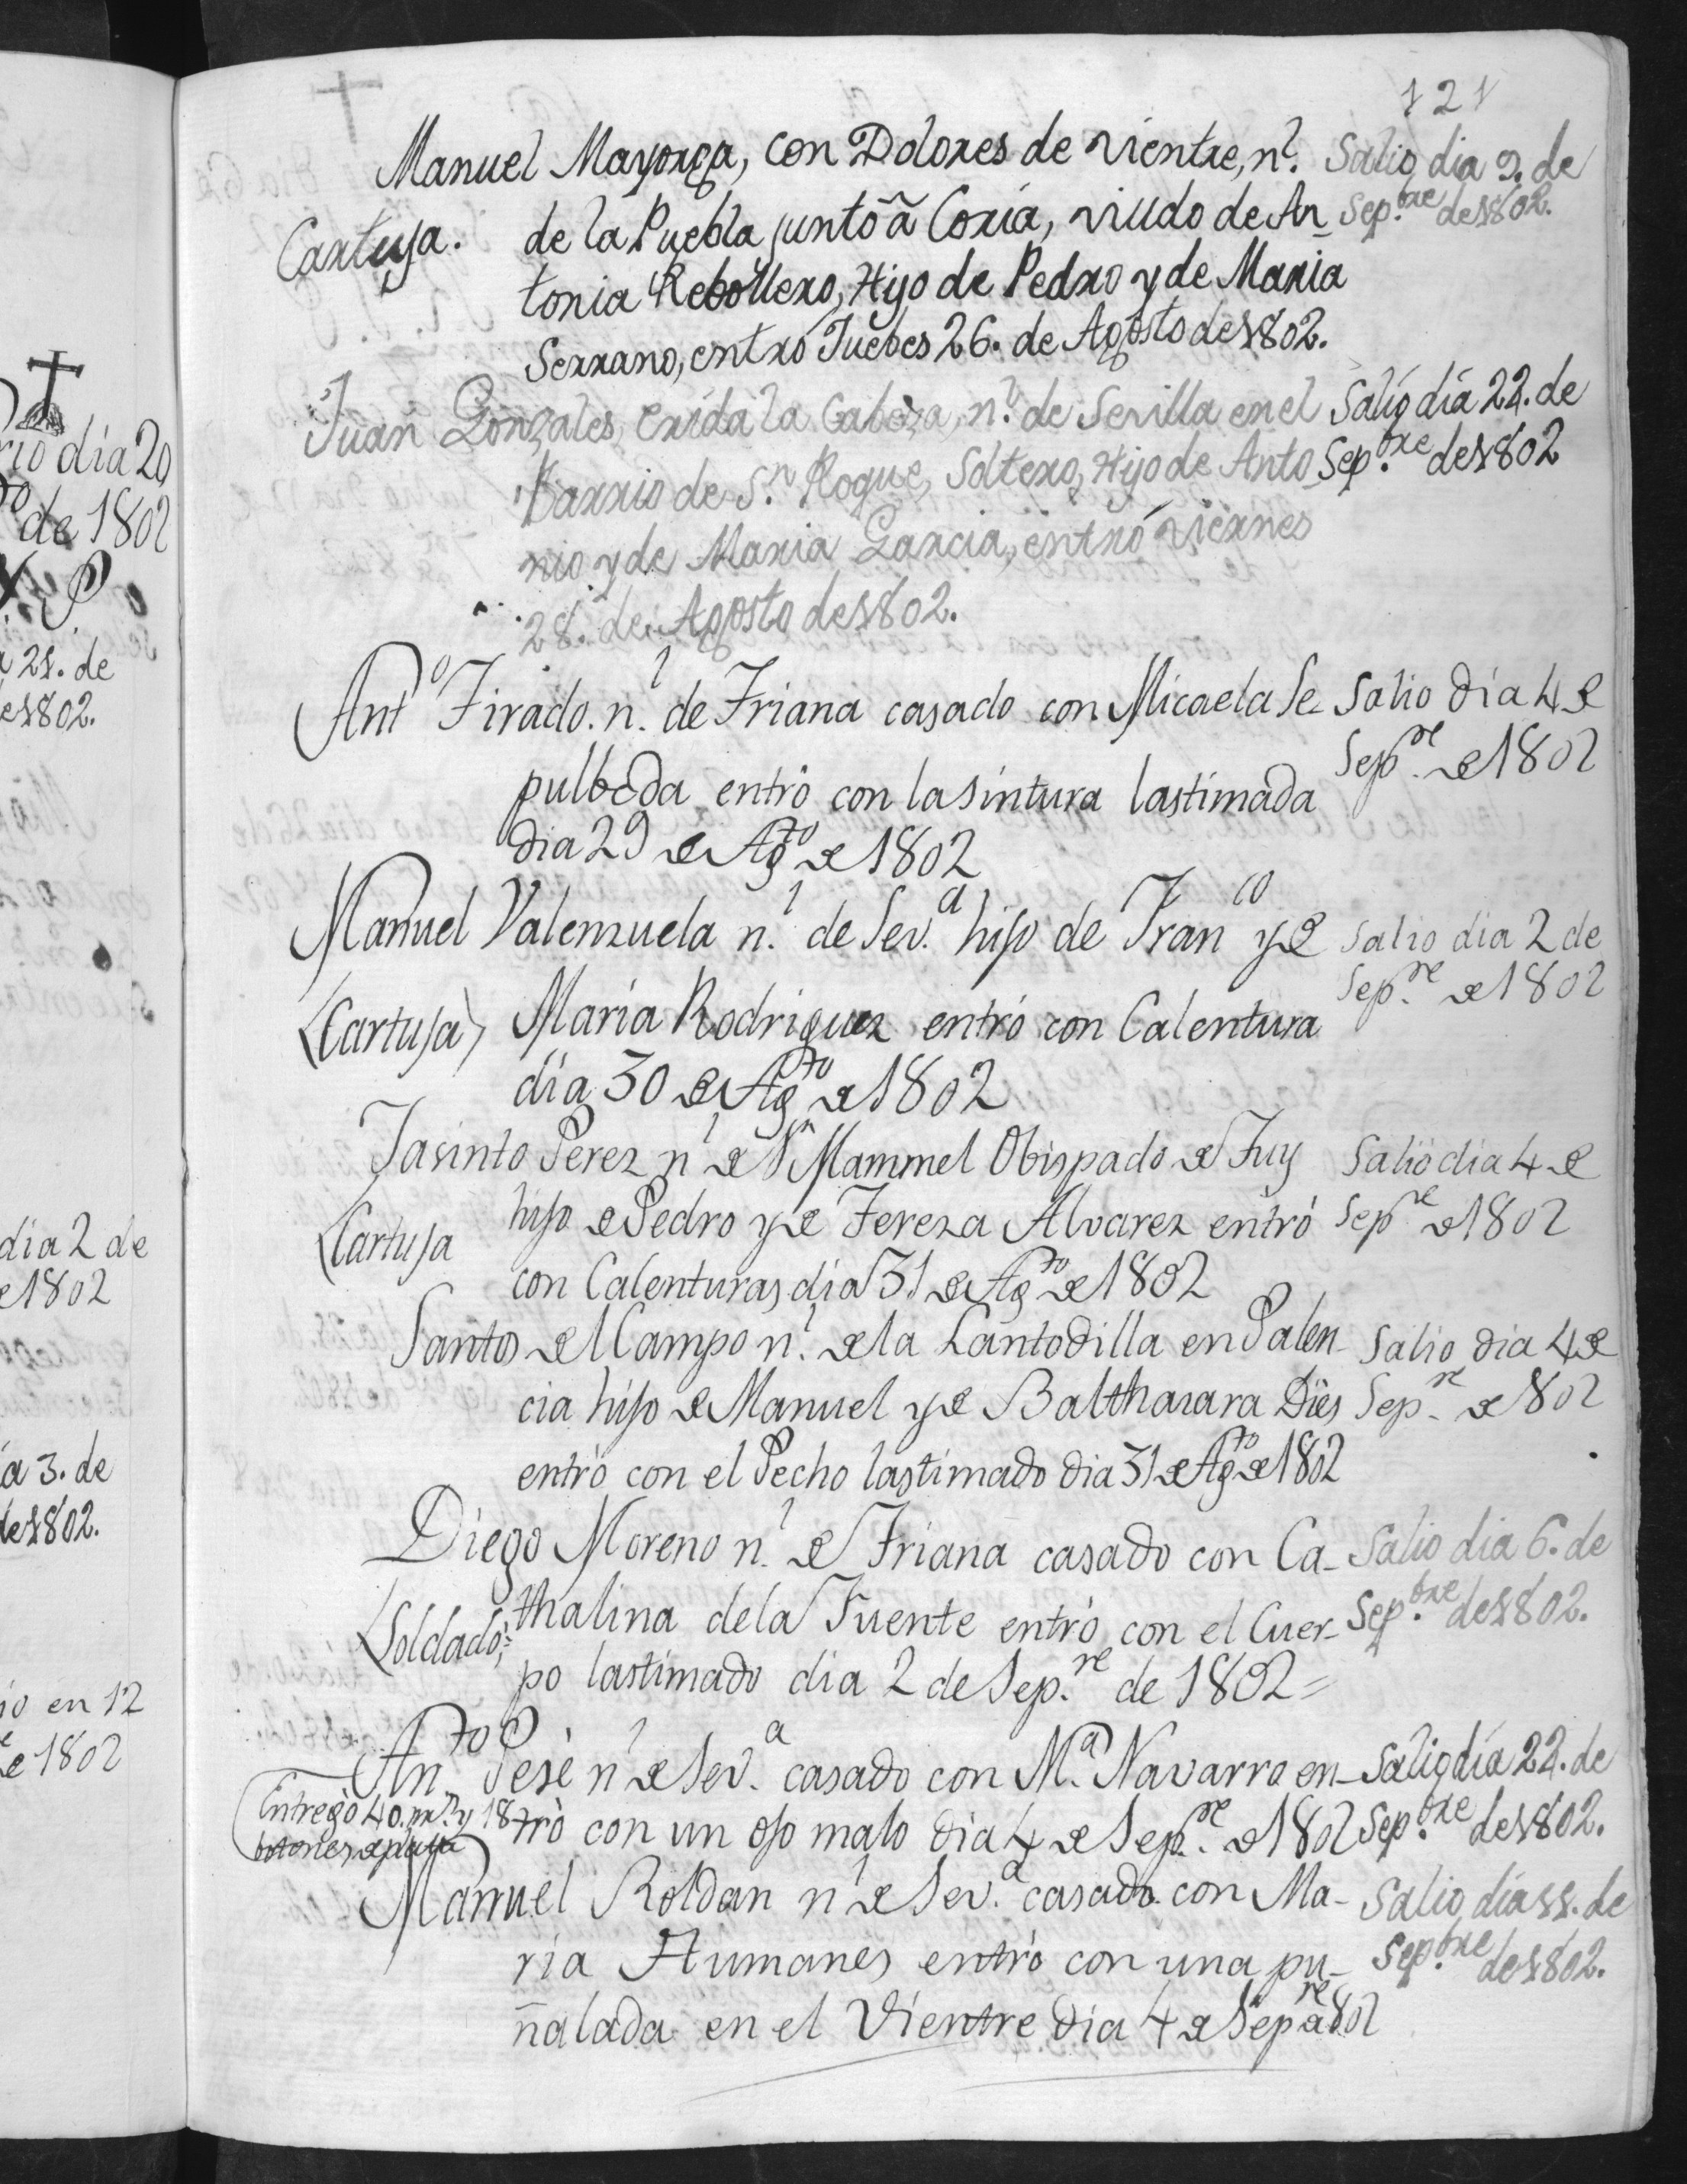 121
Manuel Mayorga, con Dolores de vientre, n.l Salio dia 9. de
Cartuja. de la Puebla junto â Coria, viudo de An_ Sep.bre de 1802.
tonia Rebollero, Hijo de Pedro y de Maria
Serrano, entró Juebes 26. de Agosto de 1802.
Juan Gonzales, erída la Cabeza, n.l de Sevilla en el Salió día 22. de
Barrio de S.n Roque, Soltero, Hijo de Anto_ Sep.bre de 1802
nio y de Maria Garcia, entró viernes
28. de Agosto de 1802.
Anto Tirado. n.l de Triana casado con Micaela Se_ Salio dia 4 de
pulbeda entró con la sintura lastimada Sep.re de 1802
dia 29 de Agto de 1802
Manuel Valenzuela n.l de Sev.a hijo de Franco y de Salio dia 2 de
(Cartuja) Maria Rodriguez entró con Calentura Sep.re de 1802
dia 30 de Agto de 1802
Jasinto Perez nl de Sn Mammel Obispado de Tuy Salio dia 4 de
(Cartuja hijo de Pedro y de Tereza Alvarez entró Sepre de 1802
con Calenturas dia 31 de Agto de 1802
Santos del Campo n.l de la Lantodilla en Palen_ Salio dia 4 de
cia hijo de Manuel y de Balthasara Dies Sep.re de 802
entró con el Pecho lastimado dia 31 de Agto de 1802
Diego Moreno n.l de Triana casado con Ca_ Salio dia 6. de
(Soldado; thalina de la Fuente entró con el Cuer_ Sep.bre de 1802.
po lastimado dia 2 de Sep.re de 1802=
Anto Pesè nl de Sev.a casado con M.a Navarro en_ Salio día 22. de
Entregò 40. rr.s y 18 trò con un ojo malo dia 4 de Sep.re de 1802 Sep.bre de 1802.
botones de plata
Manuel Roldan nl de Sev.a casado con Ma_ Salio día 11. de
ria Humanes entró con una pu_ Sep.bre de 1802.
ñalada en el Vientre dia 4 de Sepre de 802
rio día 20
de 1802
a 21. de
de 1802.
dia 2 de
e 1802
ía 3. de
de 1802.
io en 12
e 1802